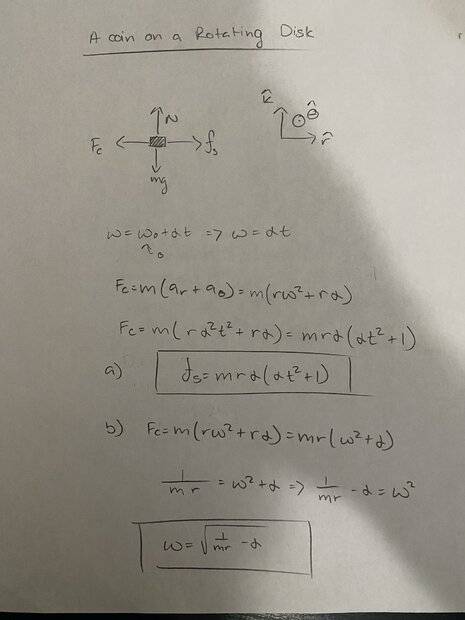 A coin on a Rotating Disk
N
Fc
fs
mg
k̂
θ̂
r̂
ω = ω₀ + αt => ω = αt
Fc = m(ar + aθ) = m(rω² + rα)
Fc = m(rα²t² + rα) = mrα(αt² + 1)
a) fs = mrα(αt² + 1)
b) Fc = m(rω² + rα) = mr(ω² + α)
1/mr = ω² + α => 1/mr - α = ω²
ω = √(1/mr - α)